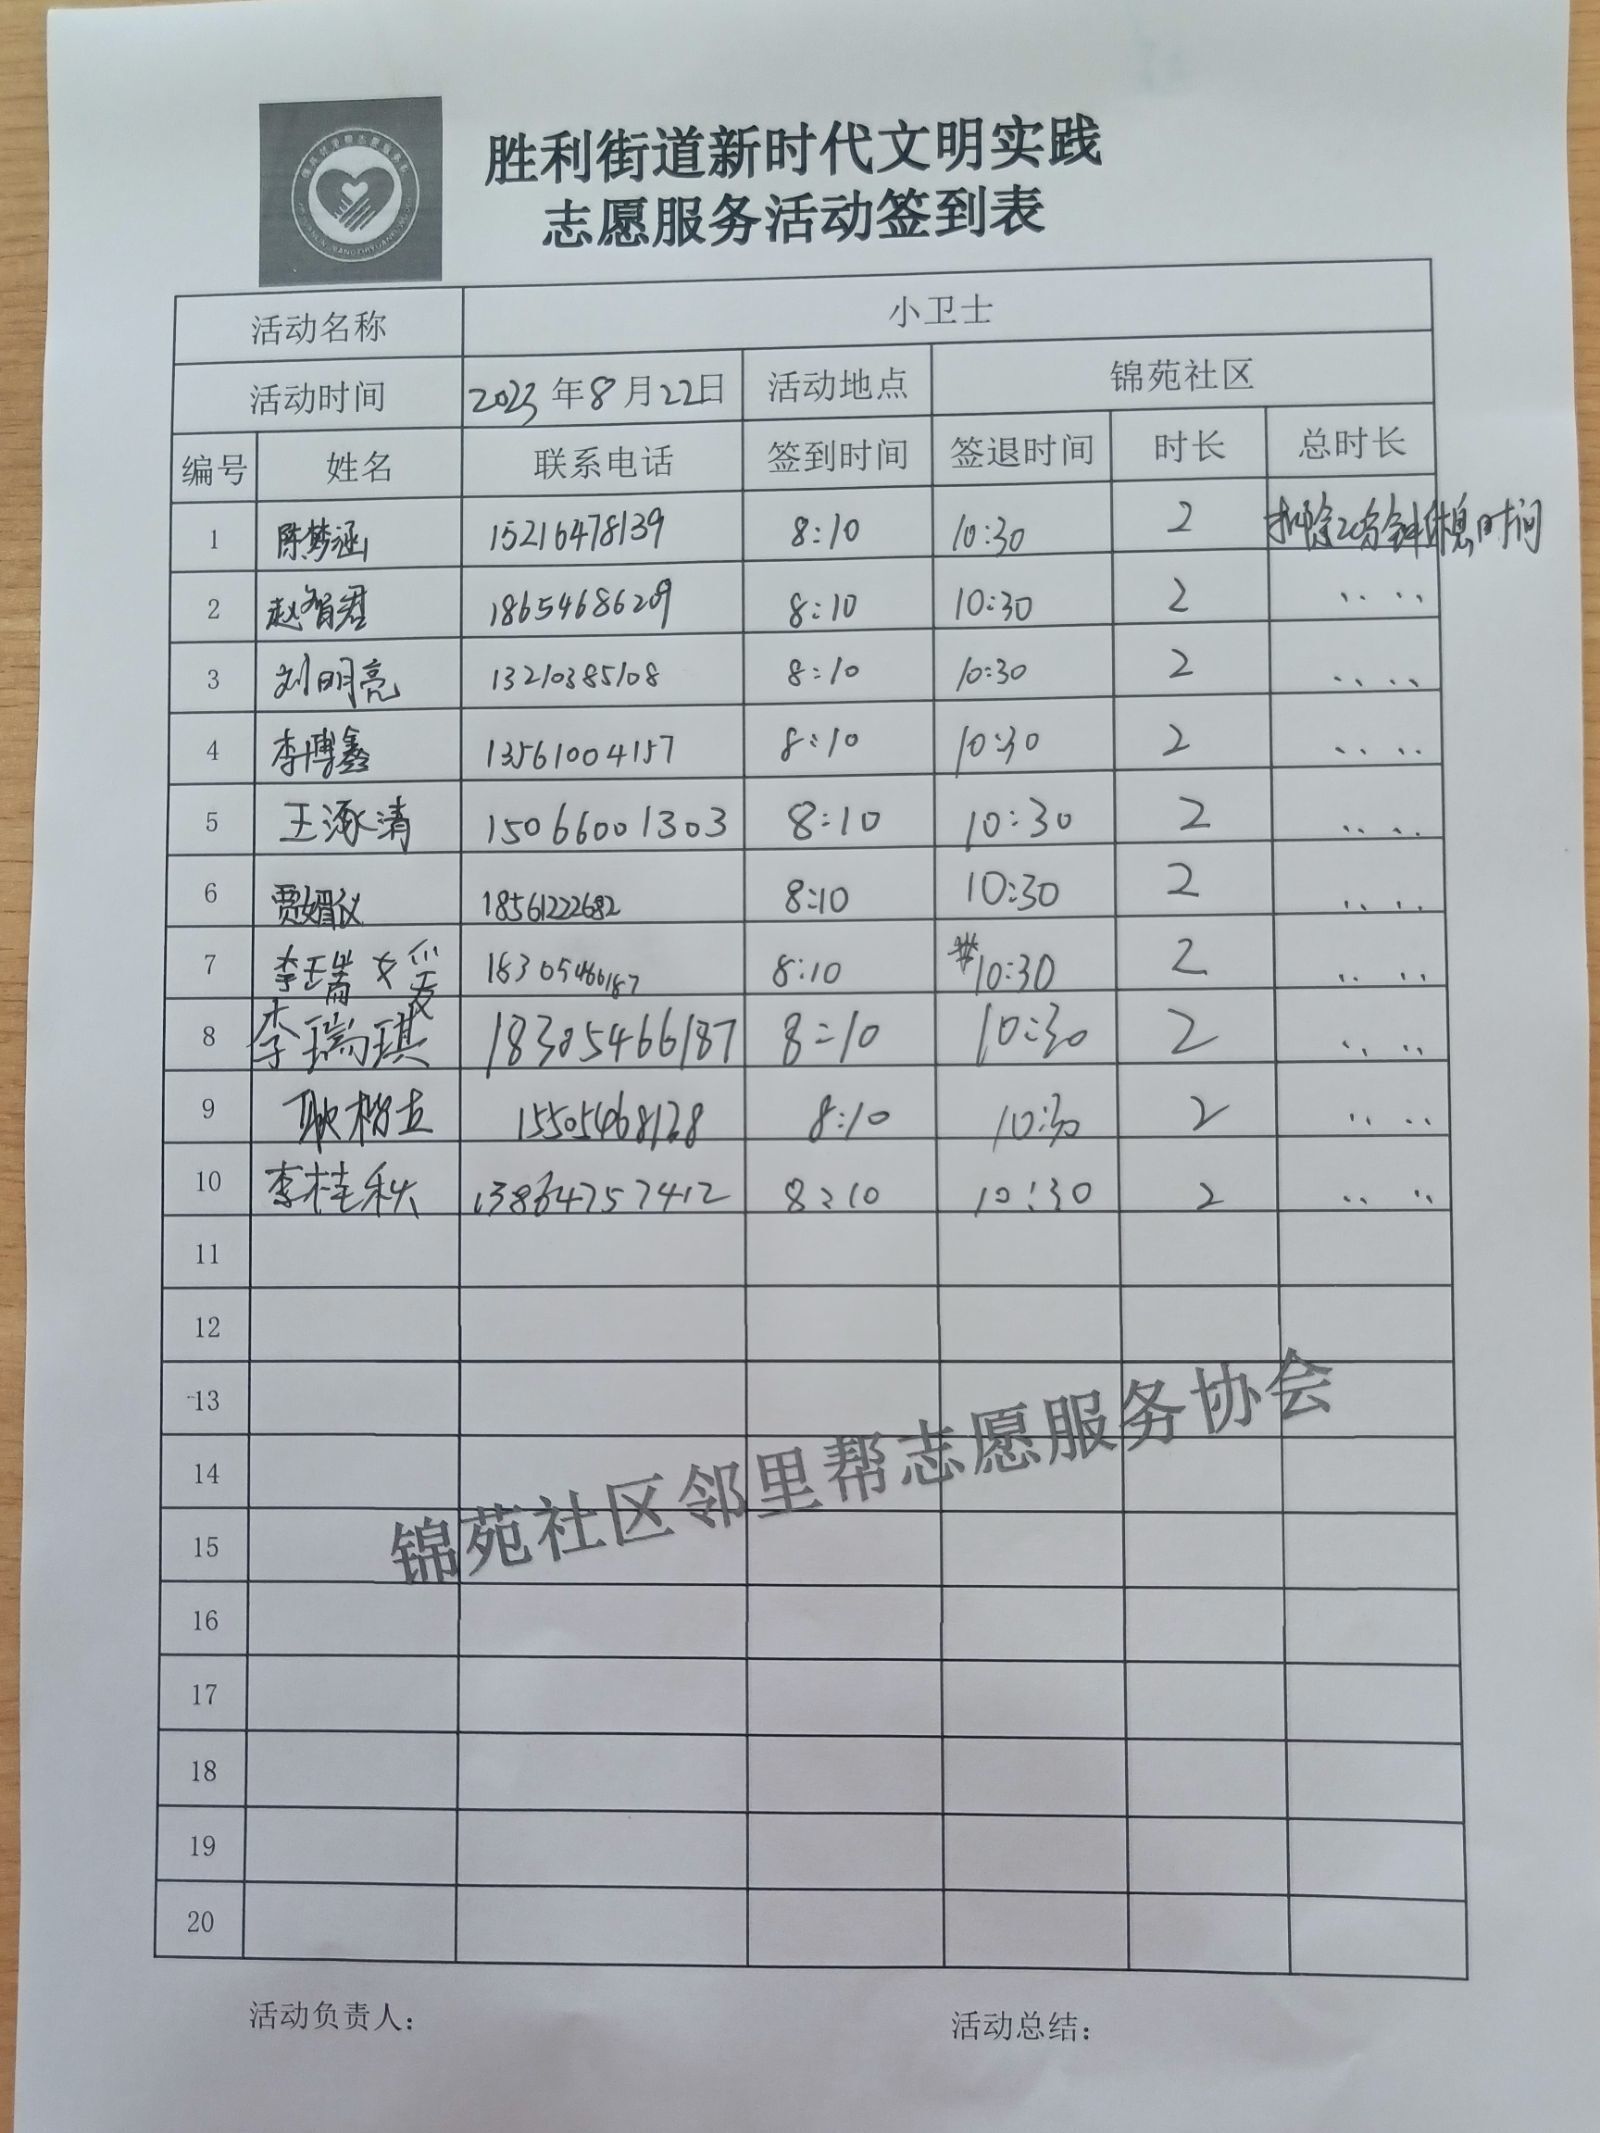 胜利街道新时代文明实践
志愿服务活动签到表
活动名称 小卫士
活动时间 2023年8月22日 活动地点 锦苑社区
编号 姓名 联系电话 签到时间 签退时间 时长 总时长
1 陈梦涵 15216478139 8:10 10:30 2 扣除20分钟休息时间
2 赵智君 18654686209 8:10 10:30 2
3 刘明亮 13210385108 8:10 10:30 2
4 李博鑫 13561004157 8:10 10:30 2
5 王涿清 15066001303 8:10 10:30 2
6 贾婿仪 18561222682 8:10 10:30 2
7 李瑞 18305466187 8:10 10:30 2
8 李瑞琪 18305466187 8:10 10:30 2
9 耿 15505468128 8:10 10:30 2
10 李桂秋 13864757412 8:10 10:30 2
11
12
13
14
15
16
17
18
19
20
锦苑社区邻里帮志愿服务协会
活动负责人： 活动总结：